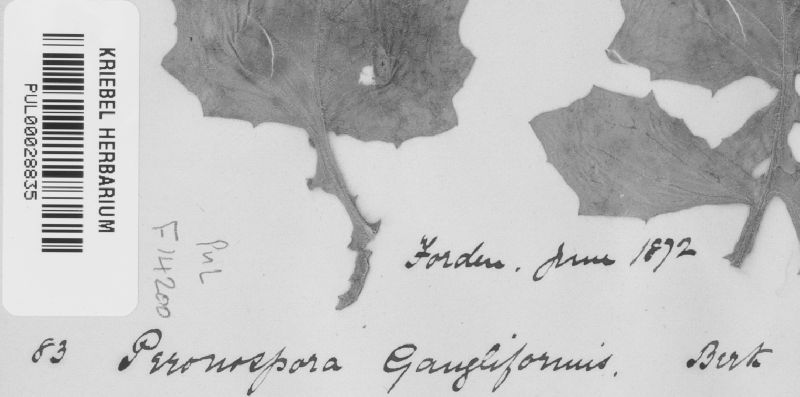 KRIEBEL HERBARIUM
PUL00028835
PUL
F14200
Forden. June 1892
83 Peronospora Gangliformis. Berk